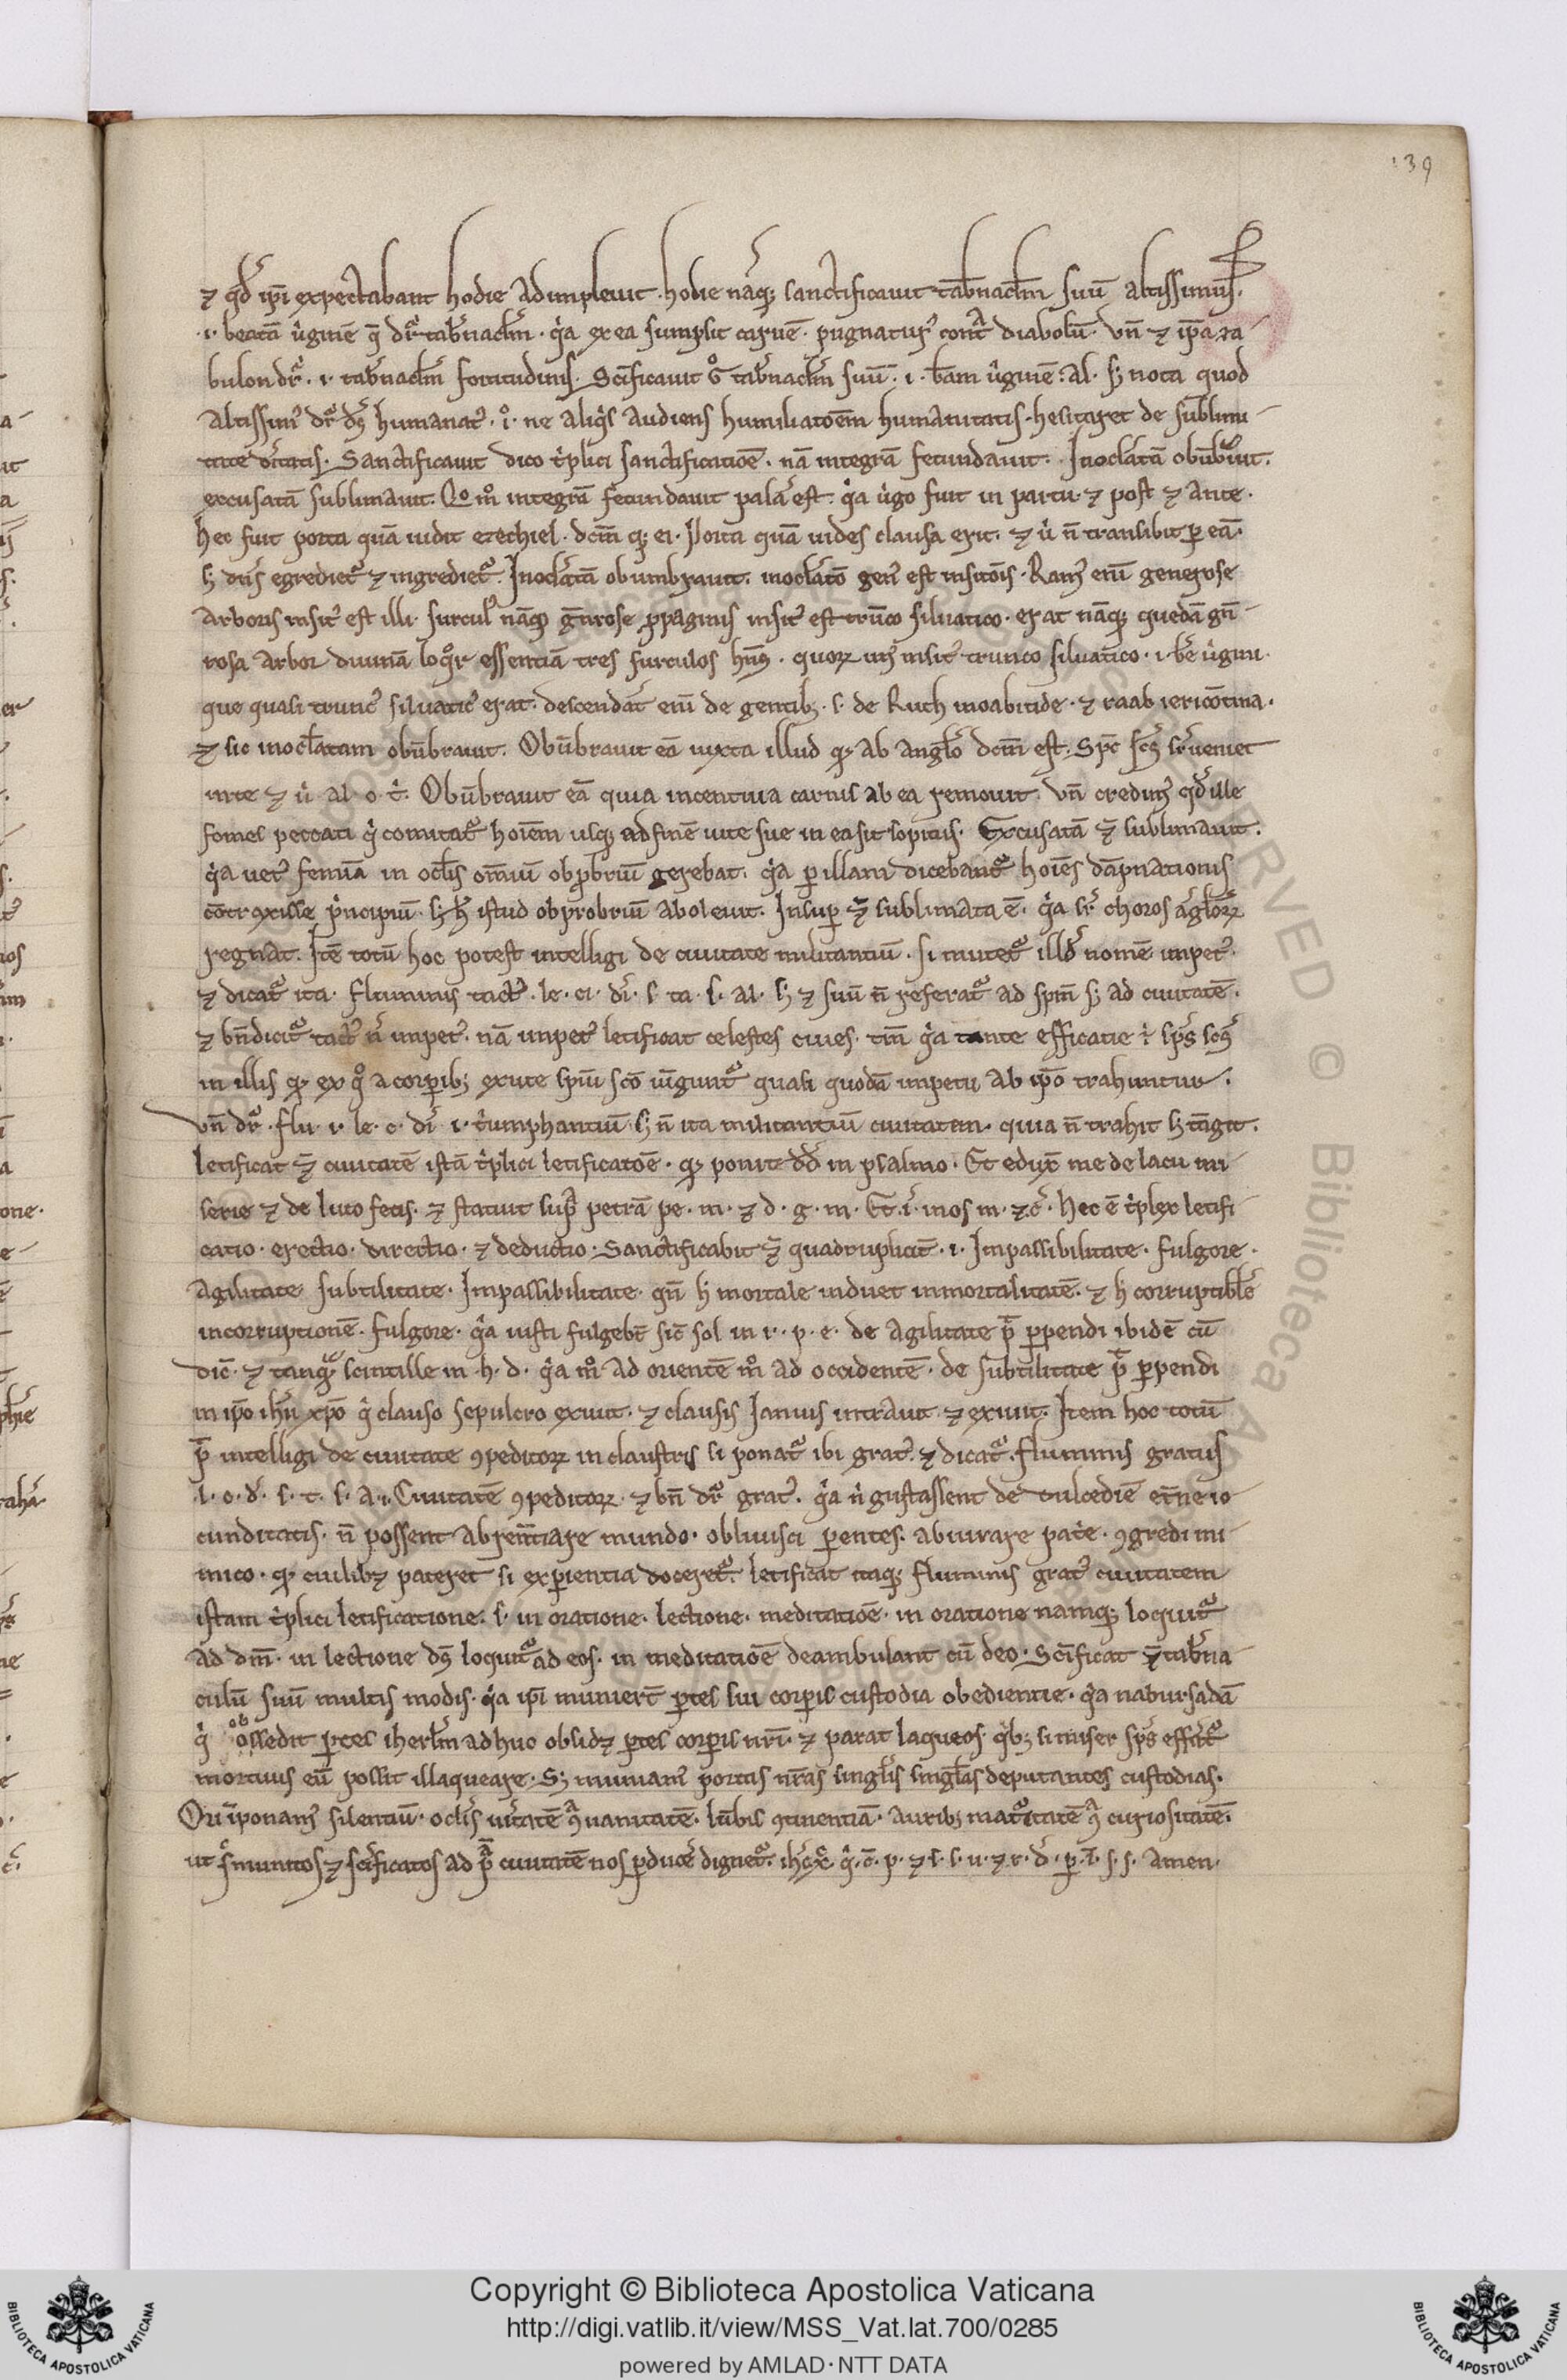 139
⁊ qd̃ ip̃i expectabant hodie adimpleuit. hodie nãq; sanctificauit tab̃nacl̃m suũ altissimus.
.i. beatã uirginẽ q̃ dr̃ tab̃nacl̃m. qͥa ex ea sumpsit carnẽ. pugnaturꝰ contᵃ diabolũ. Vñ ⁊ ip̃a za
bulon dr̃. i. tab̃nacl̃m fortitudinis. Sc̃ificauit gͦ tab̃nacl̃m suũ. i. b̃am uͥginẽ. al. s; nota quod
altissimꝰ dr̃ dš humanatꝰ. iͦ. ne aliqͥs audiens humiliatoẽm humanitatis. hesitaret de sublimi
tate d̃itatis. Sanctificauit dico tͥplici sanctificatioẽ. nã integrã fecundauit. Inocl̃atã obũb̃uit.
excusatã sublimauit. Qͦmͦ integrã fecundauit palã est. qͥa uͥgo fuit in partu ⁊ post ⁊ ante.
hec fuit porta quã uidit ezechiel. dc̃m q; ei. Porta quã uides clausa erit. ⁊ uͥ ñ transibit ꝑ eã.
s; dñs egrediet̃ ⁊ ingrediet̃. Inocl̃atã obumbrauit. inocl̃atõ genꝰ est insitõis. Ramꝰ enĩ generose
arboris insitꝰ est illi. surculꝰ nãq; g̃nrose ꝓpaginis insitꝰ est trũco siluatico. erat nãq; quedã gñ
rosa arbor diuinã loqͦr essentiã tres surculos hñs. quoꝝ unꝰ insitꝰ trunco siluatico. i. bẽ uͥgini.
que quasi truncꝰ siluaticꝰ erat. descendãt enĩ de gentib;. s. de Ruth moabitide. ⁊ raab iericõtina.
⁊ sic inocl̃atam obũbrauit. Obũbrauit eã iuxta illud q; ab angl̃o dc̃m est. Spc̃ sc̃s sr̃ueniet
in te ⁊ uͥ al o. tͥ. Obũbrauit eã quia incentiua carnis ab ea remouit. Vñ credimꝰ qd̃ ille
fomes peccati qͥ comitat̃ hoiẽm usq; ad finẽ uite sue in ea sit sopitus. Excusatã ⁊̃ sublimauit.
qͥa uetꝰ femina in ocl̃is om̃iũ obꝓbriũ gerebat. qͥa ꝑ illam dicebant̃ hoiẽs dãpnationis
cõtraxisse pͥncipiũ. s; h̃ istud obprobriũ aboleuit. Insuꝑ ⁊̃ sublimata ẽ. qͥa sr̃ choros angl̃oꝝ
regnat. Itẽ totũ hoc potest intelligi de ciuitate militantiũ. si mutet̃ illd̃ nomẽ impetꝰ.
⁊ dicat̃ ita. fluminis tactꝰ. le. ci. di. s. ta. s. al. s; ⁊ suũ ñ referat̃ ad sp̃m s; ad ciuitatẽ.
⁊ bñ dicit̃ tactꝰ ñ impetꝰ. nã impetꝰ letificat celestes ciues. tm̃ qͥa tante efficatie iͥ sp̃s sc̃s
in illis q; ex qͦ a corꝑib; exute sp̃ui sc̃o iũgunt̃ quasi quodã impetu ab ip̃o trahuntur.
Vñ dr̃. flu. i. le. c. di. i. tͥumphantiũ. s; ñ ita militantiũ ciuitatem. quia ñ trahit s; tãgit.
letificat ⁊̃ ciuitatẽ istã tͥplici letificatoẽ. q; ponit dd̃ in psalmo. Et eduxͭ me de lacu mi
serie ⁊ de luto fecis. ⁊ statuit supᵃ petrã pe. m. ⁊ d. g. m. Et. ĩ. in os m. ⁊c̃. Hec ẽ tͥplex letifi
catio. erectio. directio. ⁊ deductio. Sanctificabit ⁊̃ quadruplicit̃. i. Impassibilitate. fulgore.
agilitate subtilitate. Impassibilitate. qñ h̃ mortale induet inmortalitatẽ. ⁊ h̃ corruptibl̃e
incorruptionẽ. fulgore. qͥa iusti fulgebt̃ sic̃ sol in r. p. e. de agilitate p̃t ꝑpendi ibidẽ cũ
dic̃. ⁊ tanq̃ scintille in h. d. qͥa mͦ ad orientẽ mͦ ad occidentẽ. de subtilitate p̃t ꝑpendi
in ip̃o ih̃u xp̃o qͥ clauso sepulcro exiuit. ⁊ clausis Ianuis intrauit ⁊ exiuit. Item hoc totũ
p̃t intelligi de ciuitate ꝯpeditoꝝ in claustris si ponat̃ ibi gratꝰ. ⁊ dicat̃. fluminis gratus
l. c. d. s. t. s. a. i. Ciuitatẽ ꝯpeditoꝝ. ⁊ bñ dr̃ gratꝰ. qͥa nͥ gustassent de dulcediẽ et̃ne io
cunditatis. ñ possent abrenũtiare mundo. obliuisci parentes. abiurare patͥe. ꝯgredi ini
mico. q; ciuilib; pateret si exꝑientia doceret̃. letificat itaq; fluminis gratꝰ ciuitatem
istam tͥplici letificatione. s. in oratione. lectione. meditatioẽ. in oratione namq; loquit̃
ad dm̃. in lectione dš loquit̃ ad eos. in meditatioẽ deambulant cũ deo. Sc̃ificat ⁊̃ tab̃na
culũ suũ multis modis. qͥa ip̃i muniert̃ ꝑtes sui corꝑis custodia obedientie. qͥa nabursadã
qͥ obsedit ꝑtes iherl̃m adhuc obsid; ꝑtes corꝑis nr̃i. ⁊ parat laqueos. qͥb; si miser sp̃s efficit̃
mortuus eũ possit illaqueare. S; muniamꝰ portas nr̃as singl̃is singl̃as deputantes custodias.
Ori ĩponamꝰ silentiũ. oclĩs uĩtatẽ ꝯᵃ uanitatẽ. lũbis ꝯtinentiã. aurib; maturitatẽ ꝯᵃ curiositatẽ.
ut sͥ munitos ⁊ sc̃ificatos ad p̃ᵃ ciuitatẽ nos ꝑduce̾ dignet̃. ih̃c xc̃. qͥ. c̃. p. ⁊ s. s. u. ⁊ r. d̃. ꝑ. ĩ. s. s. Amen.
Copyright © Biblioteca Apostolica Vaticana
http://digi.vatlib.it/view/MSS_Vat.lat.700/0285
powered by AMLAD · NTT DATA